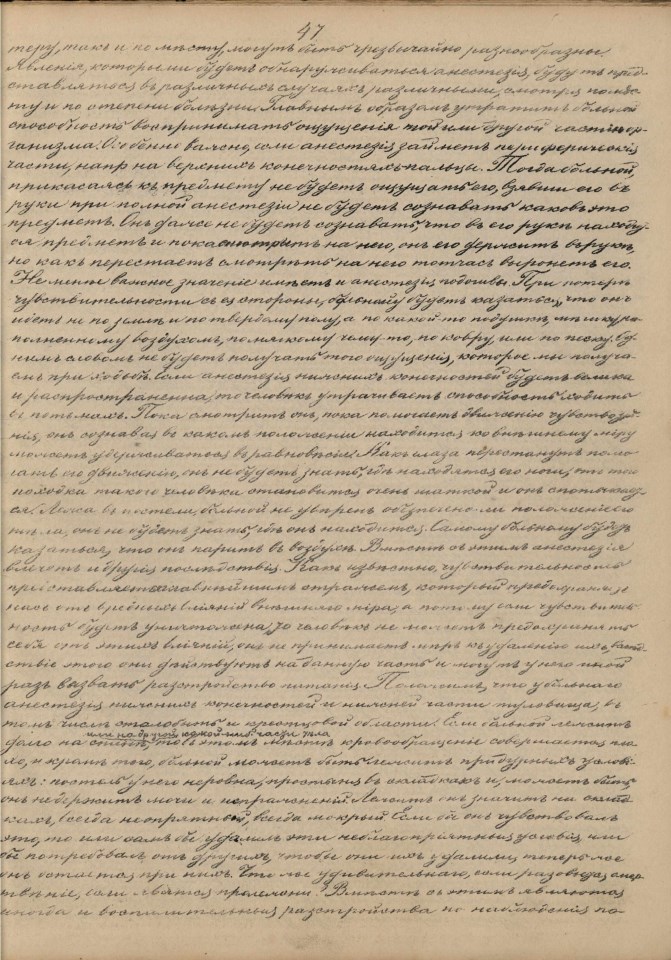 47
теру, такъ и по мѣсту, могутъ быть чрезвычайно разнообразны.
Явленія, которыми будетъ обнаруживаться анестезія, будутъ пред-
ставляться въ различныхъ случаяхъ различными, смотря по мѣс-
ту и по степени болѣзни. Главнымъ образомъ утратитъ больной
способность воспринимать ощущенія той или другой части ор-
ганизма. Особенно важно, если анестезія займетъ периферическія
части, напр. на верхнихъ конечностяхъ – пальцы. Тогда больной,
прикасаясь къ предмету не будетъ ощущать его, взявши его въ
руки при полной анестезіи не будетъ сознавать каковъ это
предметъ. Онъ даже не будетъ сознавать что въ его рукѣ находит-
ся предметъ и пока смотритъ на него, онъ его держитъ въ рукѣ,
но какъ перестаетъ смотрѣть на него тотчасъ выронетъ его.
Не менѣе важное значеніе имѣетъ и анестезія подошвы. При потерѣ
чувствительности съ ея стороны, больному будетъ казаться, что онъ
идетъ не по землѣ и по твердому полу, а по какой-то подушкѣ, мѣшку на-
полненному воздухомъ, по мягкому чему то, по ковру, или по песку. Од-
нимъ словомъ не будетъ получать того ощущенія, которое мы получа-
емъ при ходьбѣ. Если анестезія нижнихъ конечностей будетъ велика
и распространенна, то человѣкъ утрачиваетъ способность ходить
въ потьмахъ. Пока смотритъ онъ, пока помогаетъ движенію чувство зрѣ-
нія, онъ сознавая въ какомъ положеніи находится ко внѣшнему міру
можетъ удерживаться въ равновѣсіи. Какъ глаза перестанутъ помо-
гать его движенію, онъ не будетъ знать, гдѣ находятся его ноги, отъ того
походка такого человѣка становится очень шаткой и онъ спотыкает-
ся. Лежа въ постели, больной не увѣренъ
тѣла, онъ не будетъ знать, гдѣ онъ находится. Самому больному будетъ
казаться, что онъ паритъ въ воздухѣ. Вмѣстѣ съ этимъ анестезія
влечетъ и другія послѣдствія. Какъ извѣстно, чувствительность
представляется главнѣйшимъ стражемъ, который предохраняетъ
насъ отъ вредныхъ вліяній внѣшняго міра, а потому если чувствитель-
ность будетъ уничтожена, то человѣкъ не можетъ предохранять
себя отъ этихъ вліяній, онъ не принимаетъ мѣръ къ удаленію ихъ, вслѣд-
ствіе этого они дѣйствуютъ на данную часть и могутъ у него иной
разъ вызвать разстройство питанія. Положимъ, что у больнаго
анестезія нижнихъ конечностей и нижней части туловища, въ
томъ числѣ и крестцовой области. Если больной лежитъ
или на другой какой нибудь части тѣла
долго на спинѣ, то въ этомъ мѣстѣ кровообращеніе совершается пло-
хо, и кромѣ того, больной можетъ быть лежитъ при дурныхъ услові-
яхъ: постель у него неровна, простыня въ складкахъ и, можетъ быть,
онъ не держитъ мочи и испражненій. Лежитъ онъ значитъ на склад-
кахъ, всегда неопрятный, всегда мокрый. Если бы онъ чувствовалъ
это, то или самъ бы удалилъ эти неблагопріятныя условія, или
бы потребовалъ отъ другихъ, чтобы они ихъ удалили, теперь же
онъ остается при нихъ. Что же удивительнаго, если разовьется омер-
твѣніе, если явятся пролежни? Вмѣстѣ съ этимъ являются
иногда и воспалительныя разстройства по наблюденія по-